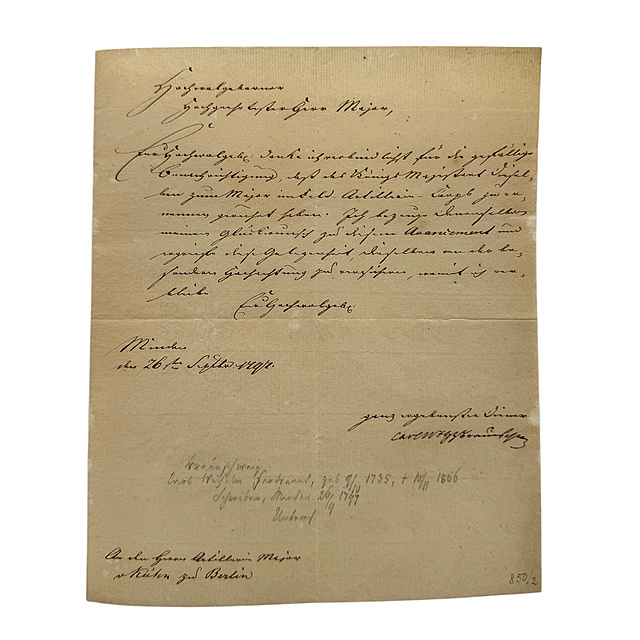 Hochwolgeborner
Hochgeehrtester Herr Major,
Eur Hochwolgeb: danke ich verbindlichst für die gefällige
Benachrichtigung, daß des Königs Majestaet Diesel-
ben zum Major im Feld Artillerie-Corps zu er-
nennen geruhet haben. Ich bezeuge Denenselben
meinen Glückwunsch zu diesem Avancement und
ergreife diese Gelegenheit, Dieselben von der be-
sondern Hochachtung zu versichern, womit ich ver-
bleibe
Eur Hochwolgeb:
Minden
den 26ten Septbr 1797.
ganz ergebenster Diener
Braunschweig
Carl Wilhelm Ferdinand, geb 9/10 1735, † 10/11 1806
Schreiben, Minden 26/9 1797
Unterschr.
An den Herrn Artillerie Major
v Kühn zu Berlin
850/2